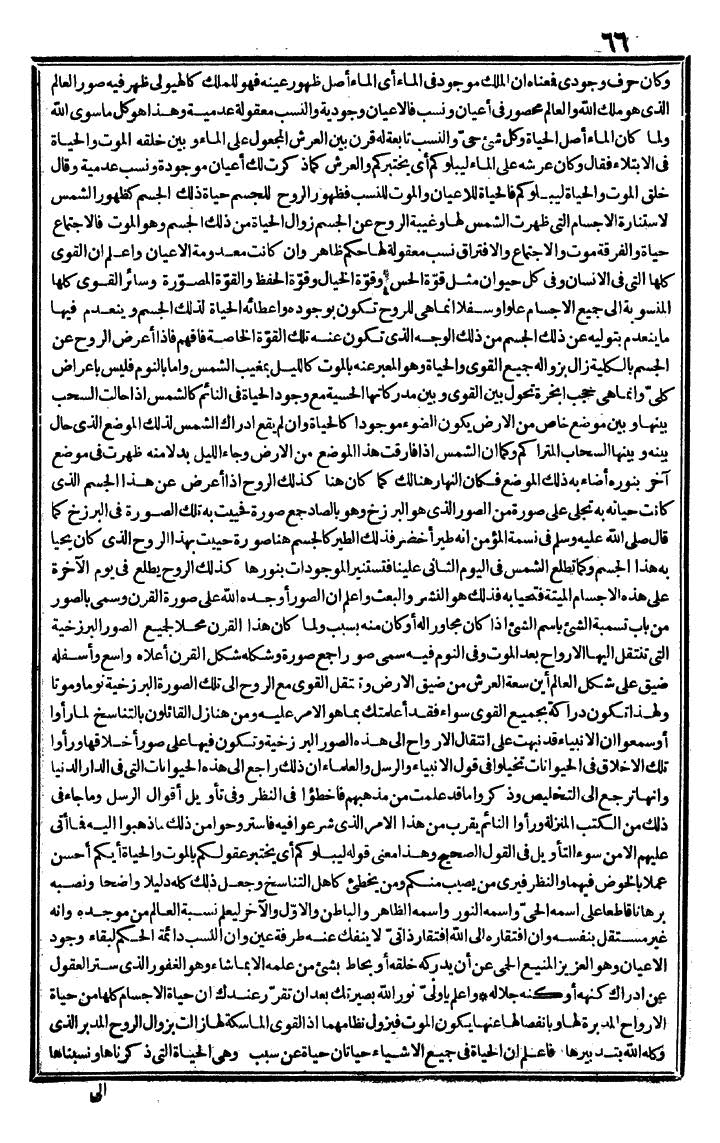 ٦٦
وكان حرف وجودى فمعناه ان الملك موجود فى الماء أى الماء أصل ظهور عينه فهو للملك كالهيولى ظهر فيه صور العالم
الذى هو ملك الله والعالم محصور فى أعيان ونسب فالاعيان وجودية والنسب معقولة عدمية وهذا هو كل ماسوى الله
ولما كان الماء أصل الحياة وكل شئ حىّ والنسب تابعة له قرن بين العرش المجعول على الماء وبين خلقه الموت والحياة
فى الابتلاء فقال وكان عرشه على الماء ليبلوكم أى يختبركم والعرش كماذ كرت لك أعيان موجودة ونسب عدمية وقال
خلق الموت والحياة ليبلوكم فالحياة للاعيان والموت للنسب فظهور الروح للجسم حياة ذلك الجسم كظهور الشمس
لاستنارة الاجسام التى ظهرت الشمس لها وغيبة الروح عن الجسم زوال الحياة من ذلك الجسم وهو الموت فالاجتماع
حياة والفرقة موت والاجتماع والافتراق نسب معقولة لها حكم ظاهر وان كانت معدومة الاعيان واعلم ان القوى
كلها التى فى الانسان وفى كل حيوان مثل قوّة الحس وقوّة الخيال وقوّة الحفظ والقوّة المصوّرة وسائر القوى كلها
المنسوبة الى جميع الاجسام علوا وسفلا انماهى للروح تكون بوجوده واعطائه الحياة لذلك الجسم وينعدم فيها
ماينعدم بتوليه عن ذلك الجسم من ذلك الوجه الذى تكون عنه تلك القوّة الخاصة فافهم فاذا أعرض الروح عن
الجسم بالكلية زال بزواله جميع القوى والحياة وهو المعبر عنه بالموت كالليل بمغيب الشمس وأما بالنوم فليس باعراض
كلىّ وانماهى حجب ابخرة تحول بين القوى وبين مدركاتها الحسية مع وجود الحياة فى النائم كالشمس اذا حالت السحب
بينها وبين موضع خاص من الارض يكون الضوء موجودا كالحياة وان لم يقع ادراك الشمس لذلك الموضع الذى حال
بينه وبينها السحاب المتراكم وكما ان الشمس اذا فارقت هذا الموضع من الارض وجاء الليل بدلا منه ظهرت فى موضع
آخر بنوره أضاء به ذلك الموضع فكان النهار هنالك كما كان هنا كذلك الروح اذا أعرض عن هذا الجسم الذى
كانت حياته به تجلى على صورة من الصور الذى هو البرزخ وهو بالصاد جمع صورة فحييت به تلك الصورة فى البرزخ كما
قال صلى الله عليه وسلم فى نسمة المؤمن انه طير أخضر فذلك الطير كالجسم هنا صورة حييت بهذا الروح الذى كان يحيا
به هذا الجسم وكما تطلع الشمس فى اليوم الثانى علينا فتستنير الموجودات بنورها كذلك الروح يطلع فى يوم الآخرة
على هذه الاجسام الميتة فتحيا به فذلك هو النشر والبعث واعلم ان الصور أوجده الله على صورة القرن وسمى بالصور
من باب تسمية الشئ باسم الشئ اذا كان مجاورا له أو كان منه بسبب ولما كان هذا القرن محلا لجميع الصور البرزخية
التى تنتقل اليها الارواح بعد الموت وفى النوم فيه سمى صورا جمع صورة وشكله شكل القرن أعلاه واسع وأسفله
ضيق على شكل العالم أين سعة العرش من ضيق الارض وتنتقل القوى مع الروح الى تلك الصورة البرزخية نوما وموتا
ولهذا تكون دراكة بجميع القوى سواء فقد أعلمتك بما هو الامر عليه ومن هنا زل القائلون بالتناسخ لما رأوا
أوسمعوا ان الانبياء قد نبهت على انتقال الارواح الى هذه الصور البرزخية وتكون فيها على صور أخلاقها ورأوا
تلك الاخلاق فى الحيوانات تخيلوا فى قول الانبياء والرسل والعلماء ان ذلك راجع الى هذه الحيوانات التى فى الدار الدنيا
وانها ترجع الى التخليص وذكروا ماقد علمت من مذهبهم فاخطؤا فى النظر وفى تأويل أقوال الرسل وماجاء فى
ذلك من الكتب المنزلة ورأوا النائم يقرب من هذا الامر الذى شرعوا فيه فاستروحوا من ذلك ماذهبوا اليه فما أتى
عليهم الامن سوء التأويل فى القول الصحيح وهذا معنى قوله ليبلوكم أى يختبر عقولكم بالموت والحياة أيكم أحسن
عملا بالخوض فيهما والنظر فيرى من يصيب منكم ومن يخطئ كاهل التناسخ وجعل ذلك كله دليلا واضحا ونصبه
برهانا قاطعا على اسمه الحىّ واسمه النور واسمه الظاهر والباطن والاوّل والآخر ليعلم نسبة العالم من موجده وانه
غير مستقل بنفسه وان افتقاره الى الله افتقار ذاتىّ لا ينفك عنه طرفة عين وان النسب دائمة الحكم لبقاء وجود
الاعيان وهو العزيز المنيع الحمى عن أن يدركه خلقه أو يحاط بشئ من علمه الابما شاء وهو الغفور الذى ستر العقول
عن ادراك كنهه أو كنه جلاله * واعلم ياولىّ نور الله بصيرتك بعد ان تقرّر عندك ان حياة الاجسام كلها من حياة
الارواح المدبرة لها وبانفصالها عنها يكون الموت فيزول نظامهما اذ القوى الماسكة لها زالت بزوال الروح المدبر الذى
وكله الله بتدبيرها فاعلم ان الحياة فى جميع الاشياء حياتان حياة عن سبب وهى الحياة التى ذكرناها ونسبناها
الى